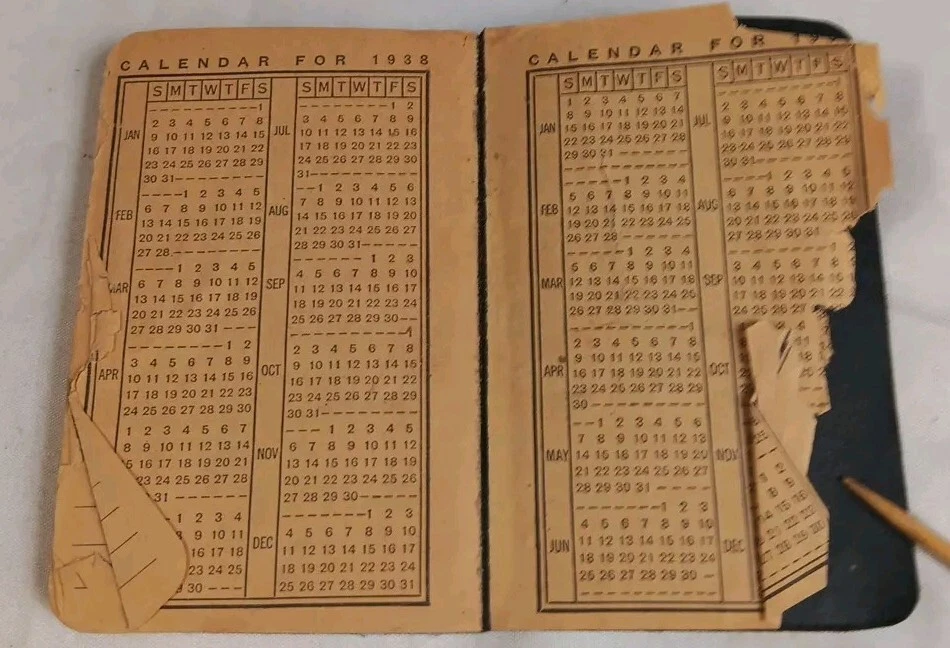 CALENDAR FOR 1938
S M T W T F S
JAN
- - - - - - 1
2 3 4 5 6 7 8
9 10 11 12 13 14 15
16 17 18 19 20 21 22
23 24 25 26 27 28 29
30 31 - - - - -
FEB
- - 1 2 3 4 5
6 7 8 9 10 11 12
13 14 15 16 17 18 19
20 21 22 23 24 25 26
27 28 - - - - -
MAR
- - 1 2 3 4 5
6 7 8 9 10 11 12
13 14 15 16 17 18 19
20 21 22 23 24 25 26
27 28 29 30 31 - -
APR
- - - - - 1 2
3 4 5 6 7 8 9
10 11 12 13 14 15 16
17 18 19 20 21 22 23
24 25 26 27 28 29 30
1 2 3 4 5 6 7
8 9 10 11 12 13 14
16 17 18 19 20 21
25 26 27 28
31 - - - -
1 2 3 4
10 11
16 17 18
23 24 25
30 - -
S M T W T F S
JUL
- - - - - 1 2
3 4 5 6 7 8 9
10 11 12 13 14 15 16
17 18 19 20 21 22 23
24 25 26 27 28 29 30
31 - - - - - -
AUG
- 1 2 3 4 5 6
7 8 9 10 11 12 13
14 15 16 17 18 19 20
21 22 23 24 25 26 27
28 29 30 31 - - -
SEP
- - - - 1 2 3
4 5 6 7 8 9 10
11 12 13 14 15 16 17
18 19 20 21 22 23 24
25 26 27 28 29 30 -
OCT
- - - - - - 1
2 3 4 5 6 7 8
9 10 11 12 13 14 15
16 17 18 19 20 21 22
23 24 25 26 27 28 29
30 31 - - - - -
NOV
- - 1 2 3 4 5
6 7 8 9 10 11 12
13 14 15 16 17 18 19
20 21 22 23 24 25 26
27 28 29 30 - - -
DEC
- - - - 1 2 3
4 5 6 7 8 9 10
11 12 13 14 15 16 17
18 19 20 21 22 23 24
25 26 27 28 29 30 31
CALENDAR FOR 19
S M T W T F S
JAN
1 2 3 4 5 6 7
8 9 10 11 12 13 14
15 16 17 18 19 20 21
22 23 24 25 26 27 28
29 30 31 - - - -
FEB
- - - 1 2 3 4
5 6 7 8 9 10 11
12 13 14 15 16 17 18
19 20 21 22 23 24 25
26 27 28 - - - -
MAR
- - - 1 2 3 4
5 6 7 8 9 10 11
12 13 14 15 16 17 18
19 20 21 22 23 24 25
26 27 28 29 30 31 -
APR
- - - - - - 1
2 3 4 5 6 7 8
9 10 11 12 13 14 15
16 17 18 19 20 21 22
23 24 25 26 27 28 29
30 - - - - - -
MAY
- 1 2 3 4 5 6
7 8 9 10 11 12 13
14 15 16 17 18 19 20
21 22 23 24 25 26 27
28 29 30 31 - - -
JUN
- - - - 1 2 3
4 5 6 7 8 9 10
11 12 13 14 15 16 17
18 19 20 21 22 23 24
25 26 27 28 29 30 -
S M T W T F S
JUL
- - - - - - 1
2 3 4 5 6 7 8
9 10 11 12 13 14 15
16 17 18 19 20 21 22
23 24 25 26 27 28 29
30 31 - - - - -
AUG
- - 1 2 3 4 5
6 7 8 9 10 11 12
13 14 15 16 17 18 19
20 21 22 23 24 25
27 28 29 30 31 - -
SEP
- - - - - 1
3 4 5 6 7 8
10 11 12 13 14 15
17 18 19 20 21 22
24 25 26 27
OCT
NOV
DEC